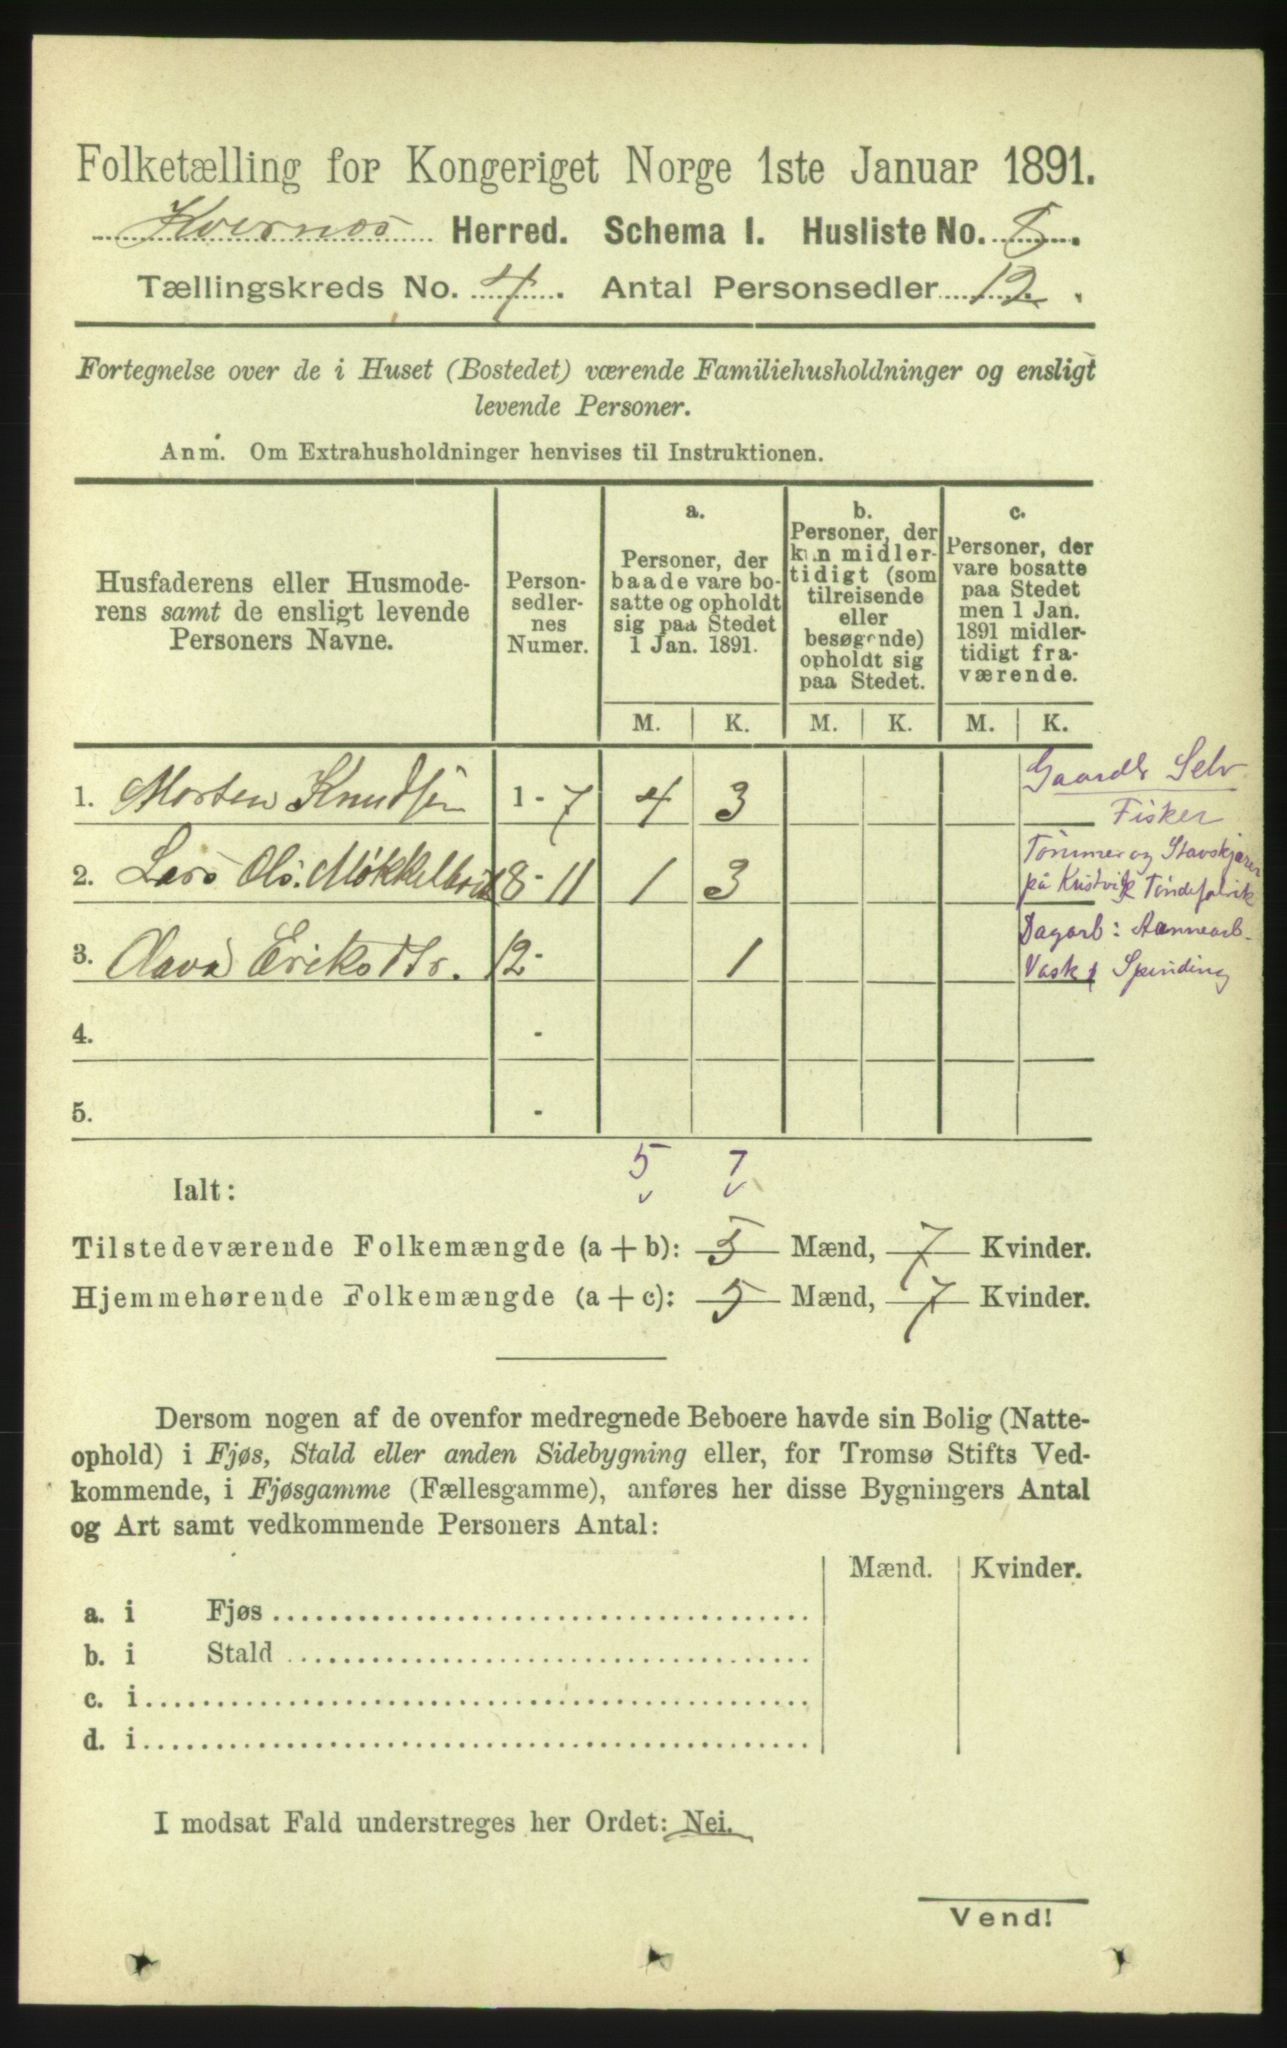 Folketælling for Kongeriget Norge 1ste Januar 1891.
Kvernes Herred. Schema I. Husliste No. 8.
Tællingskreds No. 4. Antal Personsedler 12.
Fortegnelse over de i Huset (Bostedet) værende Familiehusholdninger og ensligt
levende Personer.
Anm. Om Extrahusholdninger henvises til Instruktionen.
Husfaderens eller Husmode-
rens samt de ensligt levende
Personers Navne.
Person-
sedler-
nes
Numer.
a.
Personer, der
baade vare bo-
satte og opholdt
sig paa Stedet
1 Jan. 1891.
b.
Personer, der
kun midler-
tidigt (som
tilreisende
eller
besøgende)
opholdt sig
paa Stedet.
c.
Personer, der
vare bosatte
paa Stedet
men 1 Jan.
1891 midler-
tidigt fra-
værende.
M. K. M. K. M. K.
1. Morten Knudsen 1 - 7 4 3 Gaardb Selv
Fisker
2. Lars Ols. Møkkelbost 8 - 11 1 3 Tømmer og Stavskjærer
på Kristvik Tøndefabrik
3. Olava Eriksdtr. 12 - 1 Dagarb:
Vask Spinding
4. -
5. -
5 7
Ialt:
Tilstedeværende Folkemængde (a + b): 5 Mænd, 7 Kvinder.
Hjemmehørende Folkemængde (a + c): 5 Mænd, 7 Kvinder.
Dersom nogen af de ovenfor medregnede Beboere havde sin Bolig (Natte-
ophold) i Fjøs, Stald eller anden Sidebygning eller, for Tromsø Stifts Ved-
kommende, i Fjøsgamme (Fællesgamme), anføres her disse Bygningers Antal
og Art samt vedkommende Personers Antal:
Mænd. Kvinder.
a. i Fjøs
b. i Stald
c. i
d. i
I modsat Fald understreges her Ordet: Nei.
Vend!